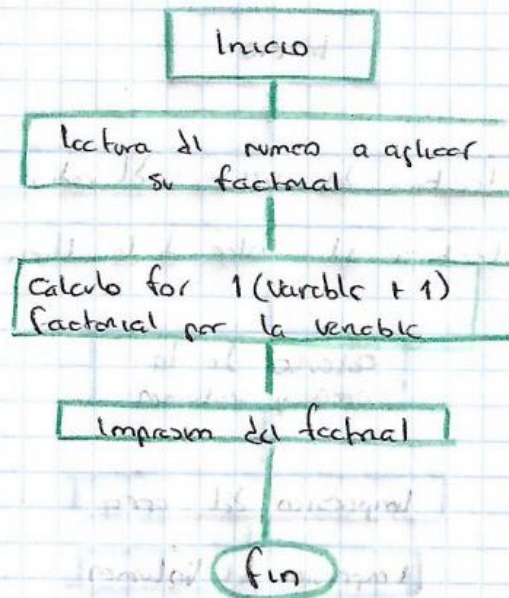 Inicio
lectura del numero a aplicar
su factorial
calculo for 1 (variable + 1)
factorial por la variable
impresion del factorial
fin